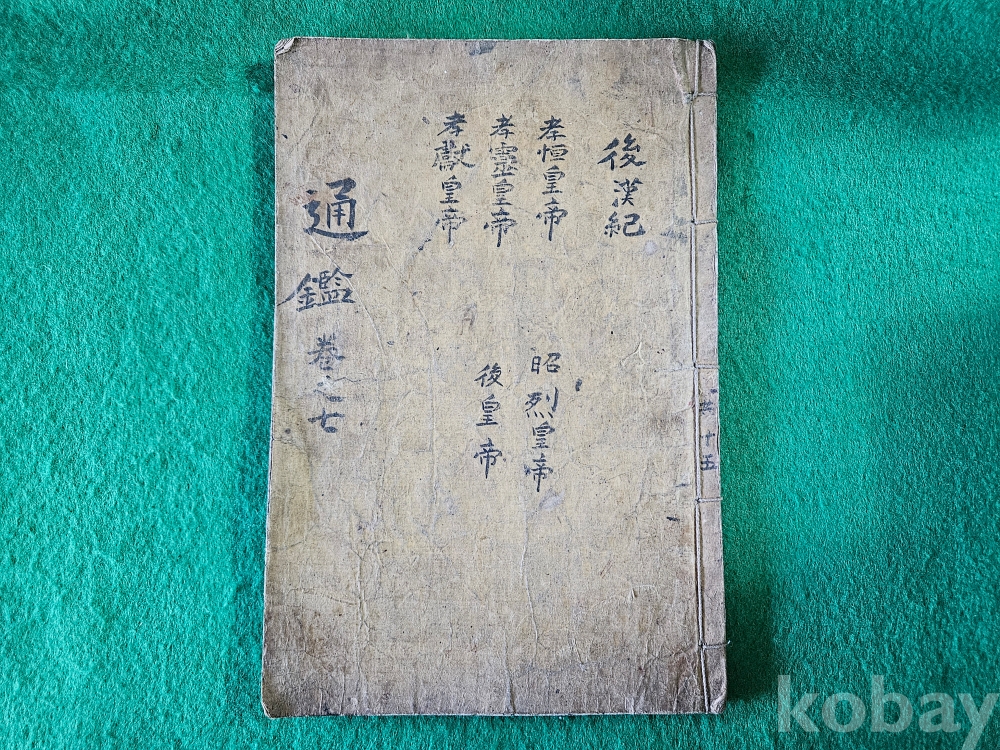 共十五
後漢紀
孝恒皇帝
孝靈皇帝
孝獻皇帝
昭烈皇帝
後皇帝
通鑑 卷之七
kobay